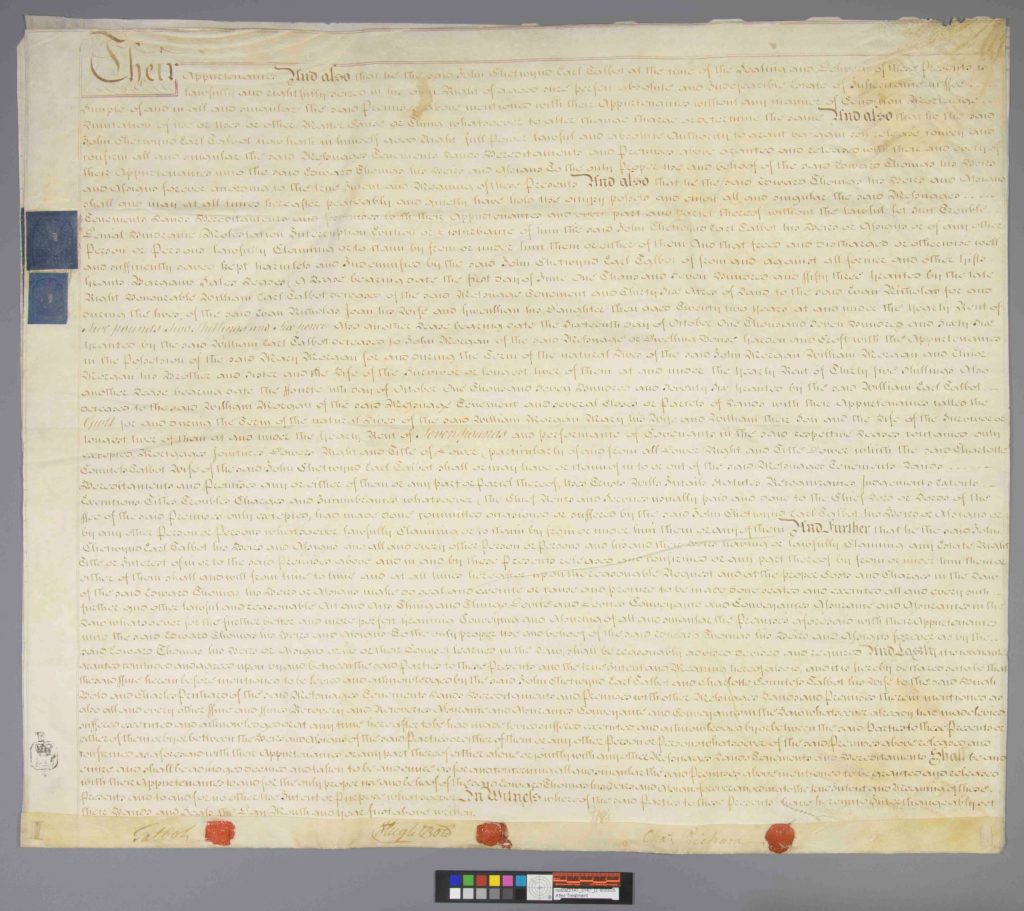 Their
Appurtenances And also that he the said John Chetwynd Earl Talbot at the time of the Sealing and Delivery of these Presents is
lawfully and rightfully seized in his own Right of a good sure perfect absolute and Indefeazible Estate of Inheritance in Fee
Simple of and in all and singular the said Premises above mentioned with their Appurtenances without any manner of Condition Mortgage
Limitation of Use or Uses or other Matter Cause or Thing whatsoever to alter change charge or determine the same And also that he the said
John Chetwynd Earl Talbot now hath in himself good Right full Power lawful and absolute Authority to grant bargain sell release convey and
confirm all and singular the said Messuages Tenements Lands Hereditaments and Premises above granted and released with their and every of
their Appurtenances unto the said Edward Thomas his Heirs and Assigns To the only proper use and behoof of the said Edward Thomas his Heirs
and Assigns forever according to the true Intent and Meaning of these Presents And also that he the said Edward Thomas his Heirs and Assigns
shall and may at all times hereafter peaceably and quietly have hold use occupy possess and enjoy all and singular the said Messuages
Tenements Lands Hereditaments and Premises with their Appurtenances and every part and parcel thereof without the lawful let suit Trouble
Denial Hindrance Molestation Interruption Eviction or Disturbance of him the said John Chetwynd Earl Talbot his Heirs or Assigns or of any other
Person or Persons lawfully Claiming or to claim by from or under him them or either of them And that freed and discharged or otherwise well
and sufficiently saved kept harmless and Indemnified by the said John Chetwynd Earl Talbot of from and against all former and other Gifts
Grants Bargains Sales Leases (a Lease bearing date the first day of June One Thousand Seven Hundred and fifty three Granted by the late
Right Honourable William Earl Talbot deceased of the said Messuage Tenement and Thirty Six Acres of Land to the said Evan Nicholas for and
during the lives of the said Evan Nicholas Joan his Wife and Gwenllian his Daughter then aged Twenty two Years at and under the Yearly Rent of
Five pounds Two Shillings and Six pence Also another Lease bearing date the Sixteenth day of October One Thousand Seven Hundred and Sixty Six
Granted by the said William Earl Talbot deceased to John Morgan of the said Messuage or Dwelling House Garden and Croft with the Appurtenances
in the Possession of the said Mary Morgan for and during the Term of the natural Lives of the said John Morgan William Morgan and
Morgan his Brother and Sister and the Life of the Survivor or longest liver of them at and under the Yearly Rent of Thirty two Shillings Also
another Lease bearing date the Fourteenth day of October One Thousand Seven Hundred and Seventy Six Granted by the said William Earl Talbot
deceased to the said William Morgan of the said Messuage Tenement and several Closes or Parcels of Lands with their Appurtenances called the
for and during the Term of the natural Lives of the said William Morgan Mary his Wife and William their Son and the Life of the Survivor or
longest liver of them at and under the Yearly Rent of Seven pounds and performance of Covenants in the said respective Leases contained only
excepted) Mortgages Jointures Dowers Right and Title of Dower (particularly of and from all Dower Right and Title Dower which the said Charlotte
Countess Talbot Wife of the said John Chetwynd Earl Talbot shall or may have or claim of in to or out of the said Messuages Tenements Lands
Hereditaments and Premises any or either of them or any part or Parcel thereof) Uses Trusts Wills Intails Statutes Recognizances Judgements Extents
Executions Titles Troubles Charges and Incumbrances whatsoever (the Chief Rents and Services usually paid and done to the Chief Lord or Lords of the
Fee of the said Premises only excepted) had made done committed occasioned or suffered by the said John Chetwynd Earl Talbot his Heirs or Assigns or
by any other Person or Persons whatsoever lawfully Claiming or to claim by from or under him them or any of them And Further that he the said John
Chetwynd Earl Talbot his Heirs and Assigns and all and every other Person or Persons and his and their Heirs having or lawfully Claiming any Estate Right
Title or Interest of in or to the said Premises above and in and by these Presents released and confirmed or any part thereof by from or under him them or
either of them shall and will from time to time and at all times hereafter upon the reasonable Request and at the proper Costs and Charges in the Law
of the said Edward Thomas his Heirs or Assigns make do seal and execute or cause and procure to be made done sealed and executed all and every such
further and other lawful and reasonable Act and Acts Thing and Things Devise and Devices Conveyance and Conveyances Assurance and Assurances in the
Law whatsoever for the further better and more perfect Granting Conveying and Assuring of all and singular the Premises aforesaid with their Appurtenances
unto the said Edward Thomas his Heirs and Assigns To the only proper Use and behoof of the said Edward Thomas his Heirs and Assigns forever as by the
said Edward Thomas his Heirs or Assigns or his or their Counsel learned in the Law shall be reasonably advised devised and required And Lastly it is covenanted
granted concluded and agreed upon by and between the said Parties to these Presents and the true Intent and Meaning hereof also is and it is hereby declared so to be that
the said Fine herein before mentioned to be levied and acknowledged by the said John Chetwynd Earl Talbot and Charlotte Countess Talbot his Wife to the said Hugh
Bold and Charles Prichard of the said Messuages Tenements Lands Hereditaments and Premises with other Messuages Lands and Premises therein mentioned as
also all and every other Fine and Fines Recovery and Recoveries Assurance and Assurances Conveyance and Conveyances in the Law whatsoever already had made levied
suffered executed and acknowledged or at any time hereafter to be had made levied suffered executed and acknowledged by or between the said Parties to these Presents or
either of them or by or between the Heirs and Assigns of the said Parties or either of them or any other Person or Persons whatsoever of the said Premises above released and
confirmed as aforesaid with their Appurtenances or any part thereof either alone or jointly with any other Messuages Lands Tenements and Hereditaments Shall be and
enure and shall be adjudged deemed and taken to be and enure as for and concerning all and singular the said Premises above mentioned to be granted and released
with their Appurtenances to and for the only proper use and behalf of the said Edward Thomas his Heirs and Assigns forever according to the true Intent and Meaning of these
Presents and to and for no other Use Intent or Purpose whatsoever In Witness whereof the said Parties to these Presents have hereunto Interchangeably set
their Hands and Seals the Day Month and Year first above written
Talbot
Hugh Bold
Chas Prichard
After Treatment